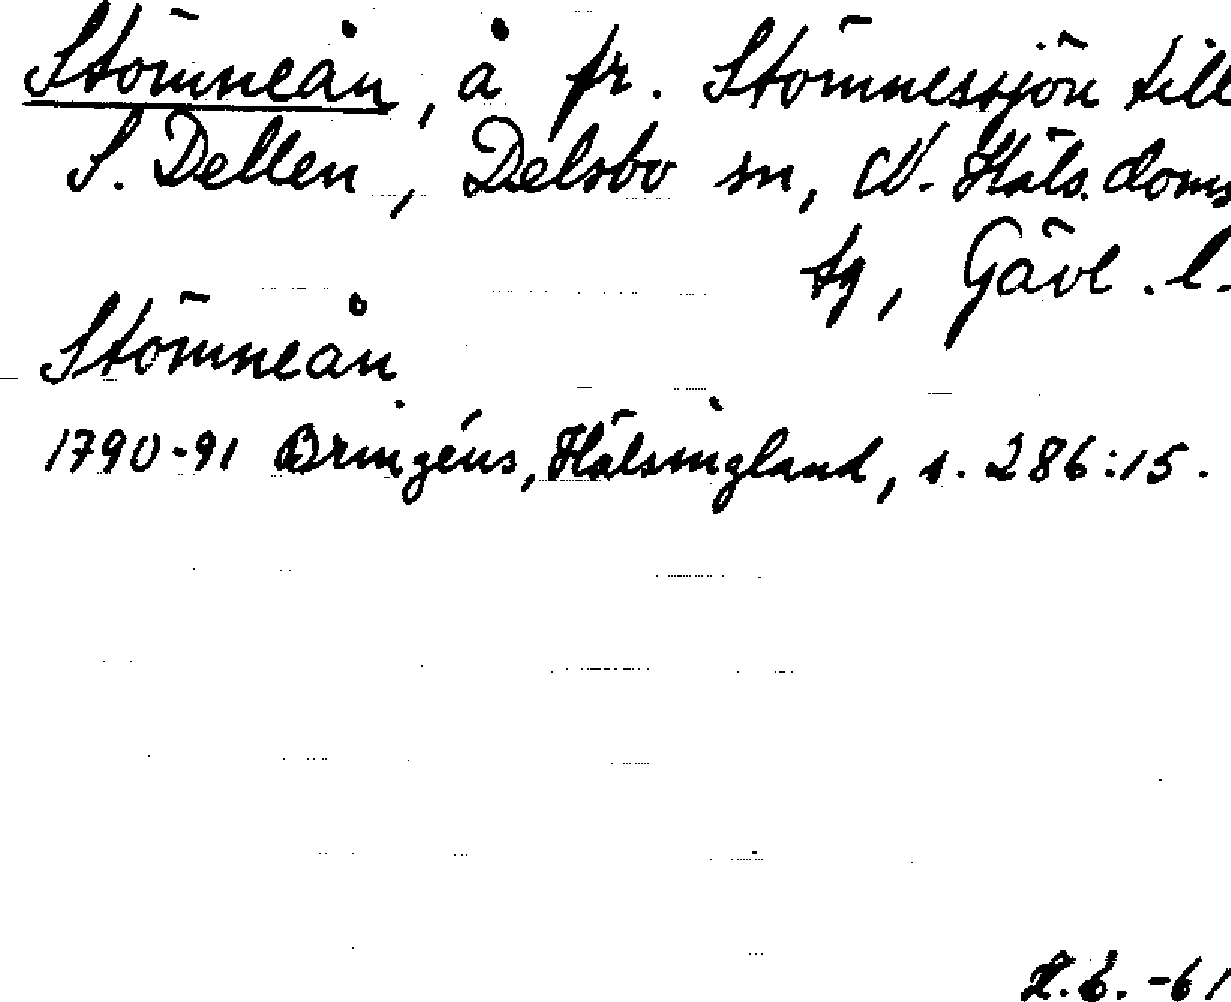 Stömneån, å fr. Stömnessjön till
S. Dellen, Delsbo sn, N. Häls. doms
tg, Gävl. l.
Stömneån
1790-91 Bringéus, Hälsingland, s. 286:15.
-61